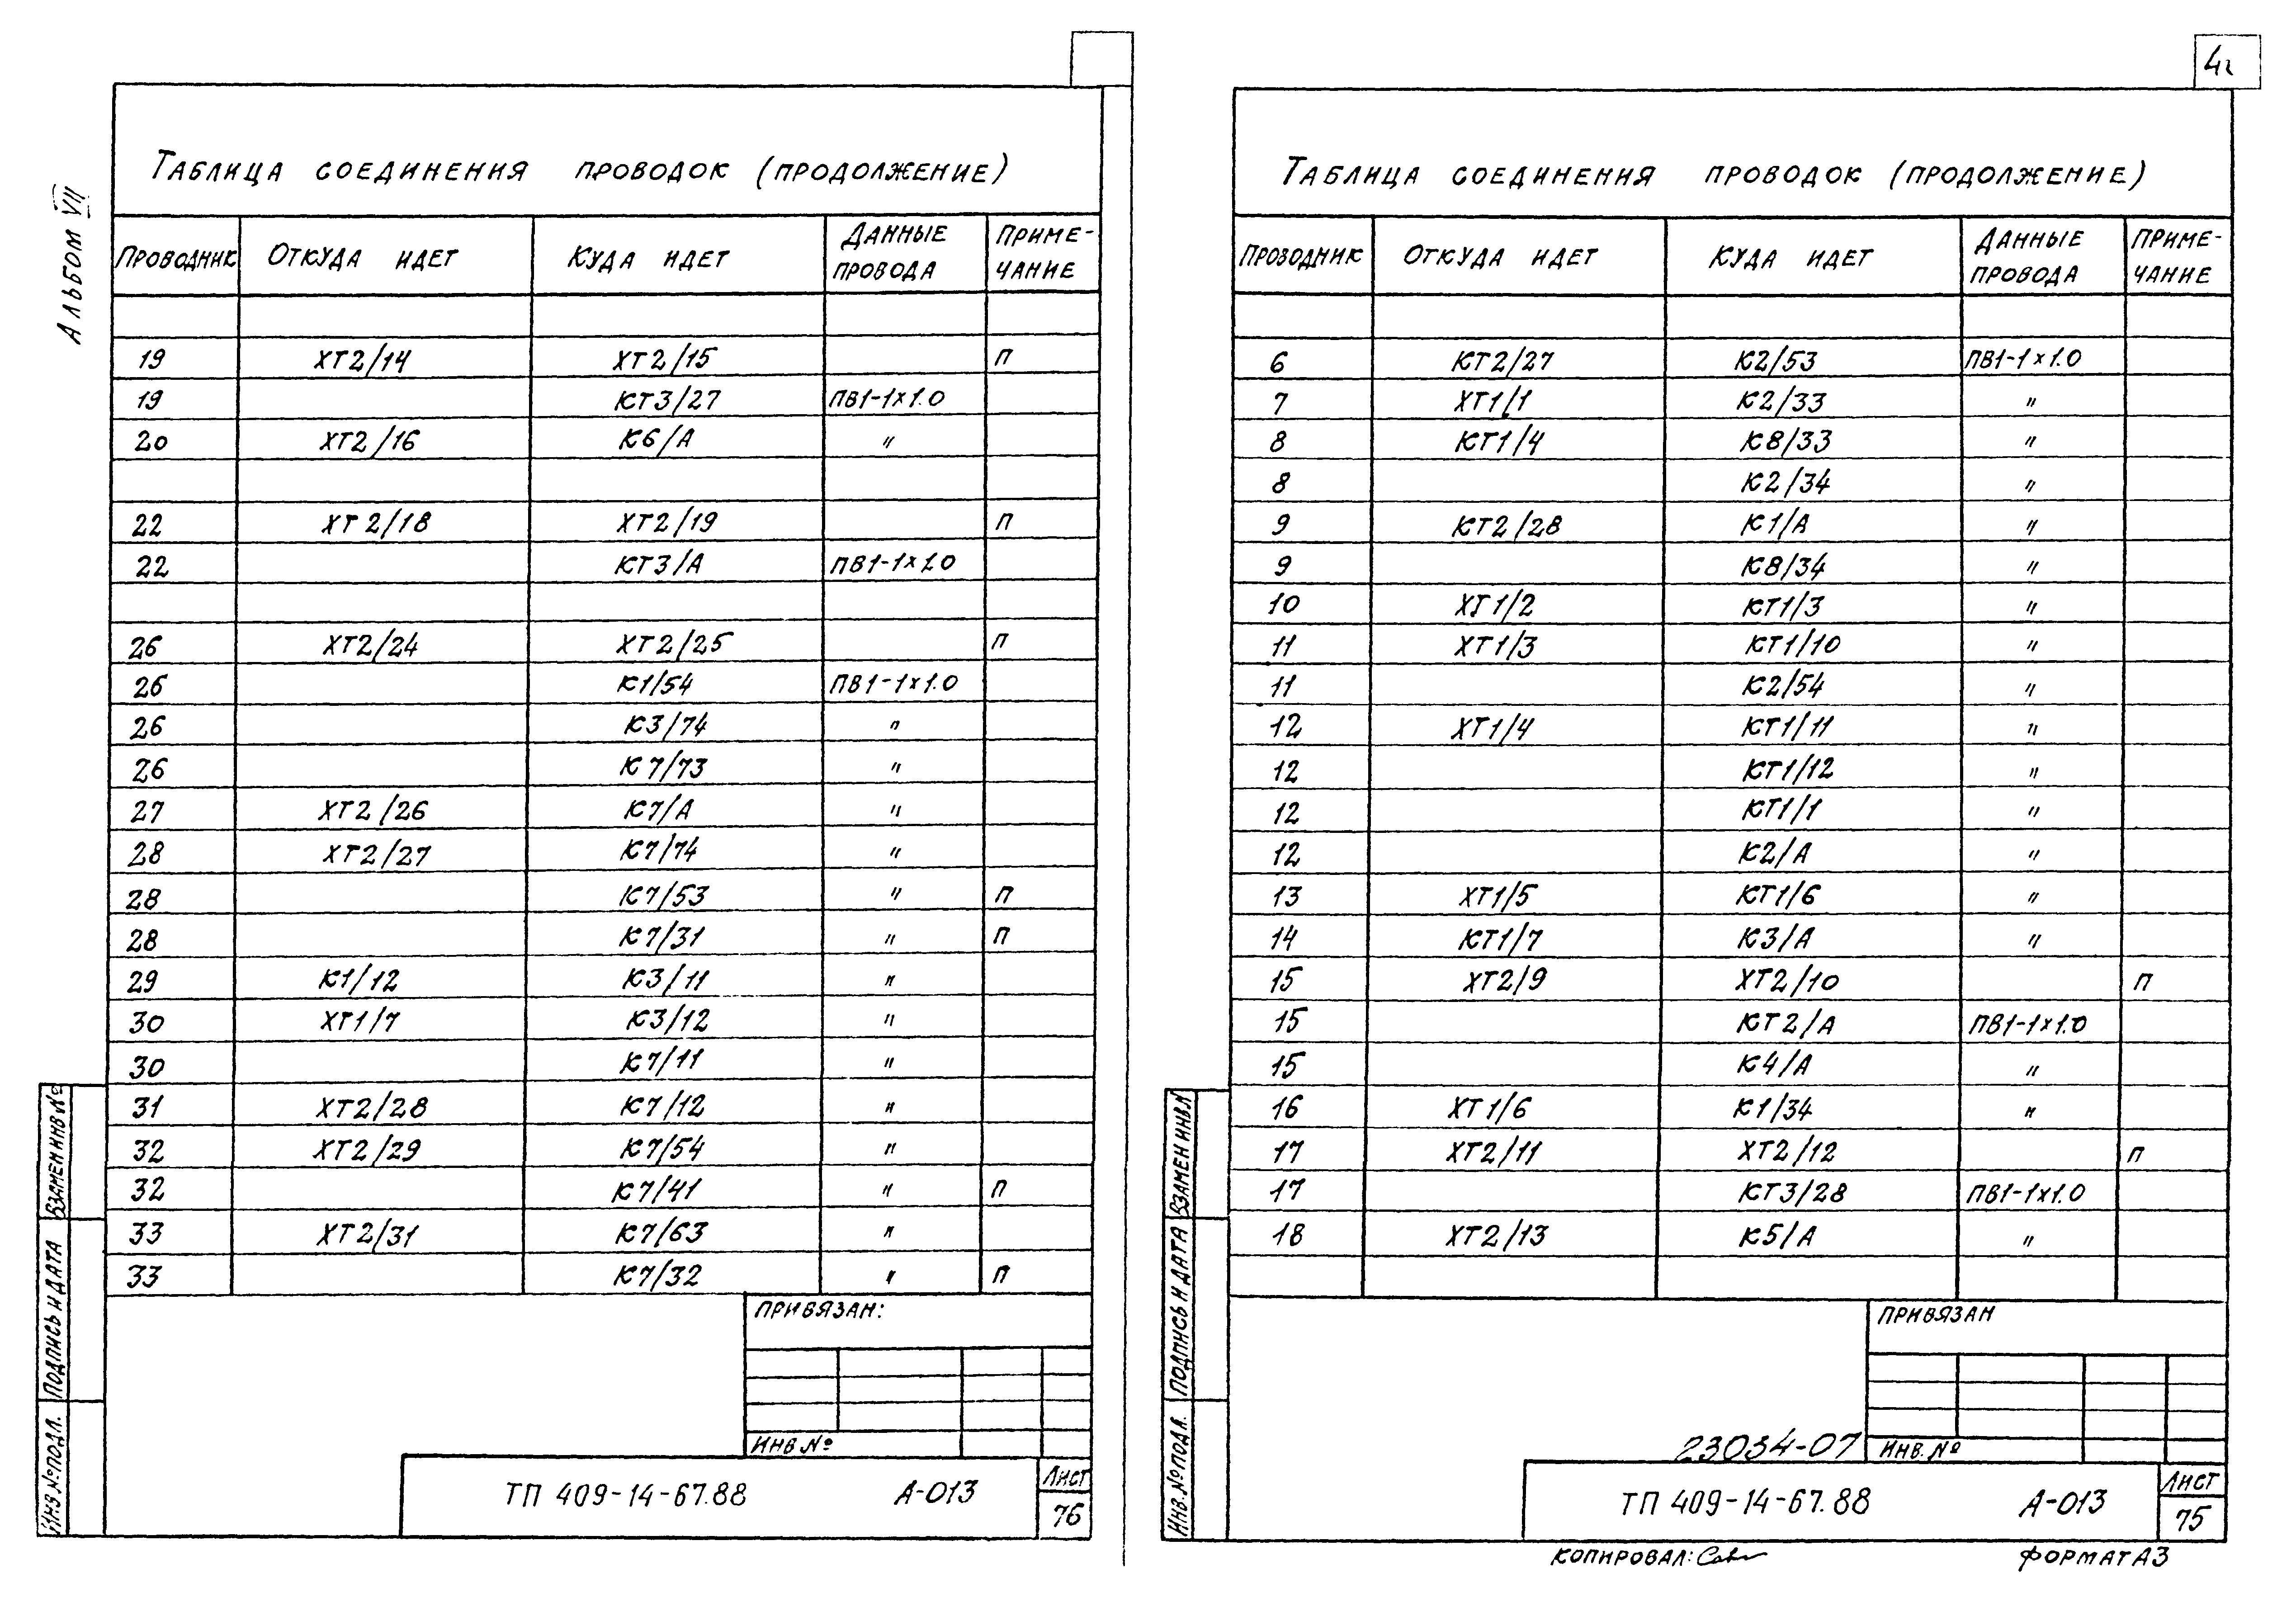 Альбом VII
Таблица соединения проводок (продолжение)
Проводник Откуда идет Куда идет Данные провода Приме-чание
19 ХТ2/14 ХТ2/15 П
19 КТ3/27 ПВ1-1×1.0
20 ХТ2/16 К6/А "
22 ХТ2/18 ХТ2/19 П
22 КТ3/А ПВ1-1×1.0
26 ХТ2/24 ХТ2/25 П
26 К1/54 ПВ1-1×1.0
26 К3/74 "
26 К7/73 "
27 ХТ2/26 К7/А "
28 ХТ2/27 К7/74 "
28 К7/53 " П
28 К7/31 " П
29 К1/12 К3/11 "
30 ХТ1/7 К3/12 "
30 К7/11 "
31 ХТ2/28 К7/12 "
32 ХТ2/29 К7/54 "
32 К7/41 " П
33 ХТ2/31 К7/63 "
33 К7/32 " П
Привязан:
Инв №
ТП 409-14-67.88 А-013
Лист
76
Взамен инв №
Подпись и дата
Инв № подл.
Таблица соединения проводок (продолжение)
Проводник Откуда идет Куда идет Данные провода Приме-чание
6 КТ2/27 К2/53 ПВ1-1×1.0
7 ХТ1/1 К2/33 "
8 КТ1/4 К8/33 "
8 К2/34 "
9 КТ2/28 К1/А "
9 К8/34 "
10 ХТ1/2 КТ1/3 "
11 ХТ1/3 КТ1/10 "
11 К2/54 "
12 ХТ1/4 КТ1/11 "
12 КТ1/12 "
12 КТ1/1 "
12 К2/А "
13 ХТ1/5 КТ1/6 "
14 КТ1/7 К3/А "
15 ХТ2/9 ХТ2/10 П
15 КТ2/А ПВ1-1×1.0
15 К4/А "
16 ХТ1/6 К1/34 "
17 ХТ2/11 ХТ2/12 П
17 КТ3/28 ПВ1-1×1.0
18 ХТ2/13 К5/А "
Привязан
23034-07
Инв. №
ТП 409-14-67.88 А-013
Лист
75
Взамен инв.№
Подпись и дата
Инв. № подл.
Копировал:
Формат А3